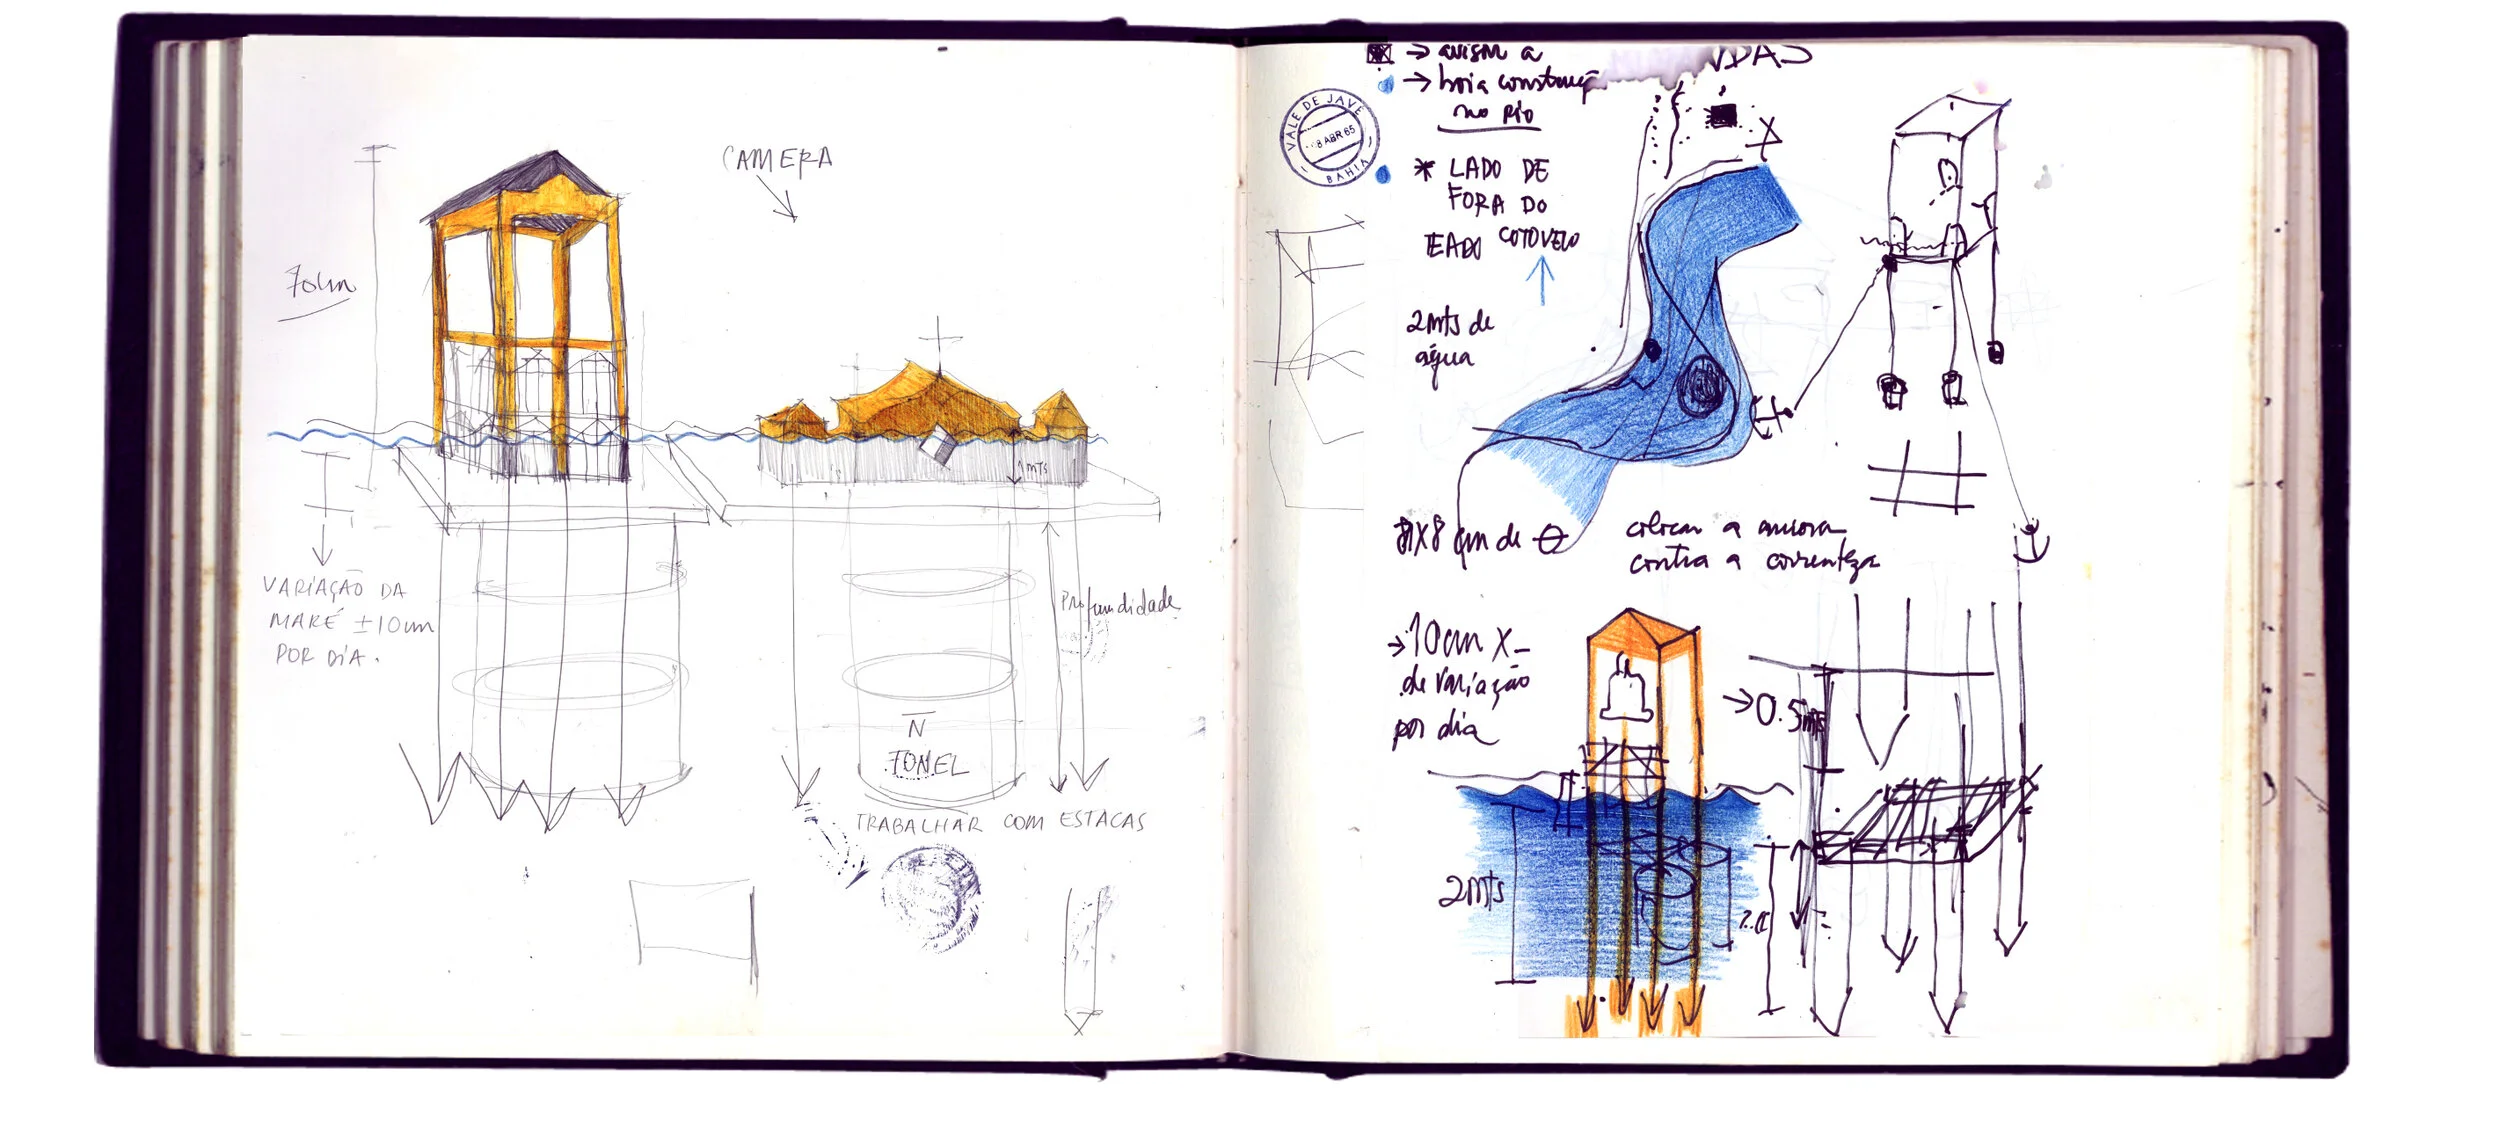 CAMERA
70cm
1mts
VARIAÇÃO DA
MARÉ ±10cm
POR DIA.
Profundidade
N
TONEL
TRABALHAR COM ESTACAS
→ avisar a
→ boia construç
no Rio
VALE DE JAVÉ
8 ABR 65
BAHIA
* LADO DE
FORA DO
COTOVELO
2mts de
água
colocar a ancora
contra a correnteza
→ 10cm X
de variação
por dia
→ 0.5mts
2mts